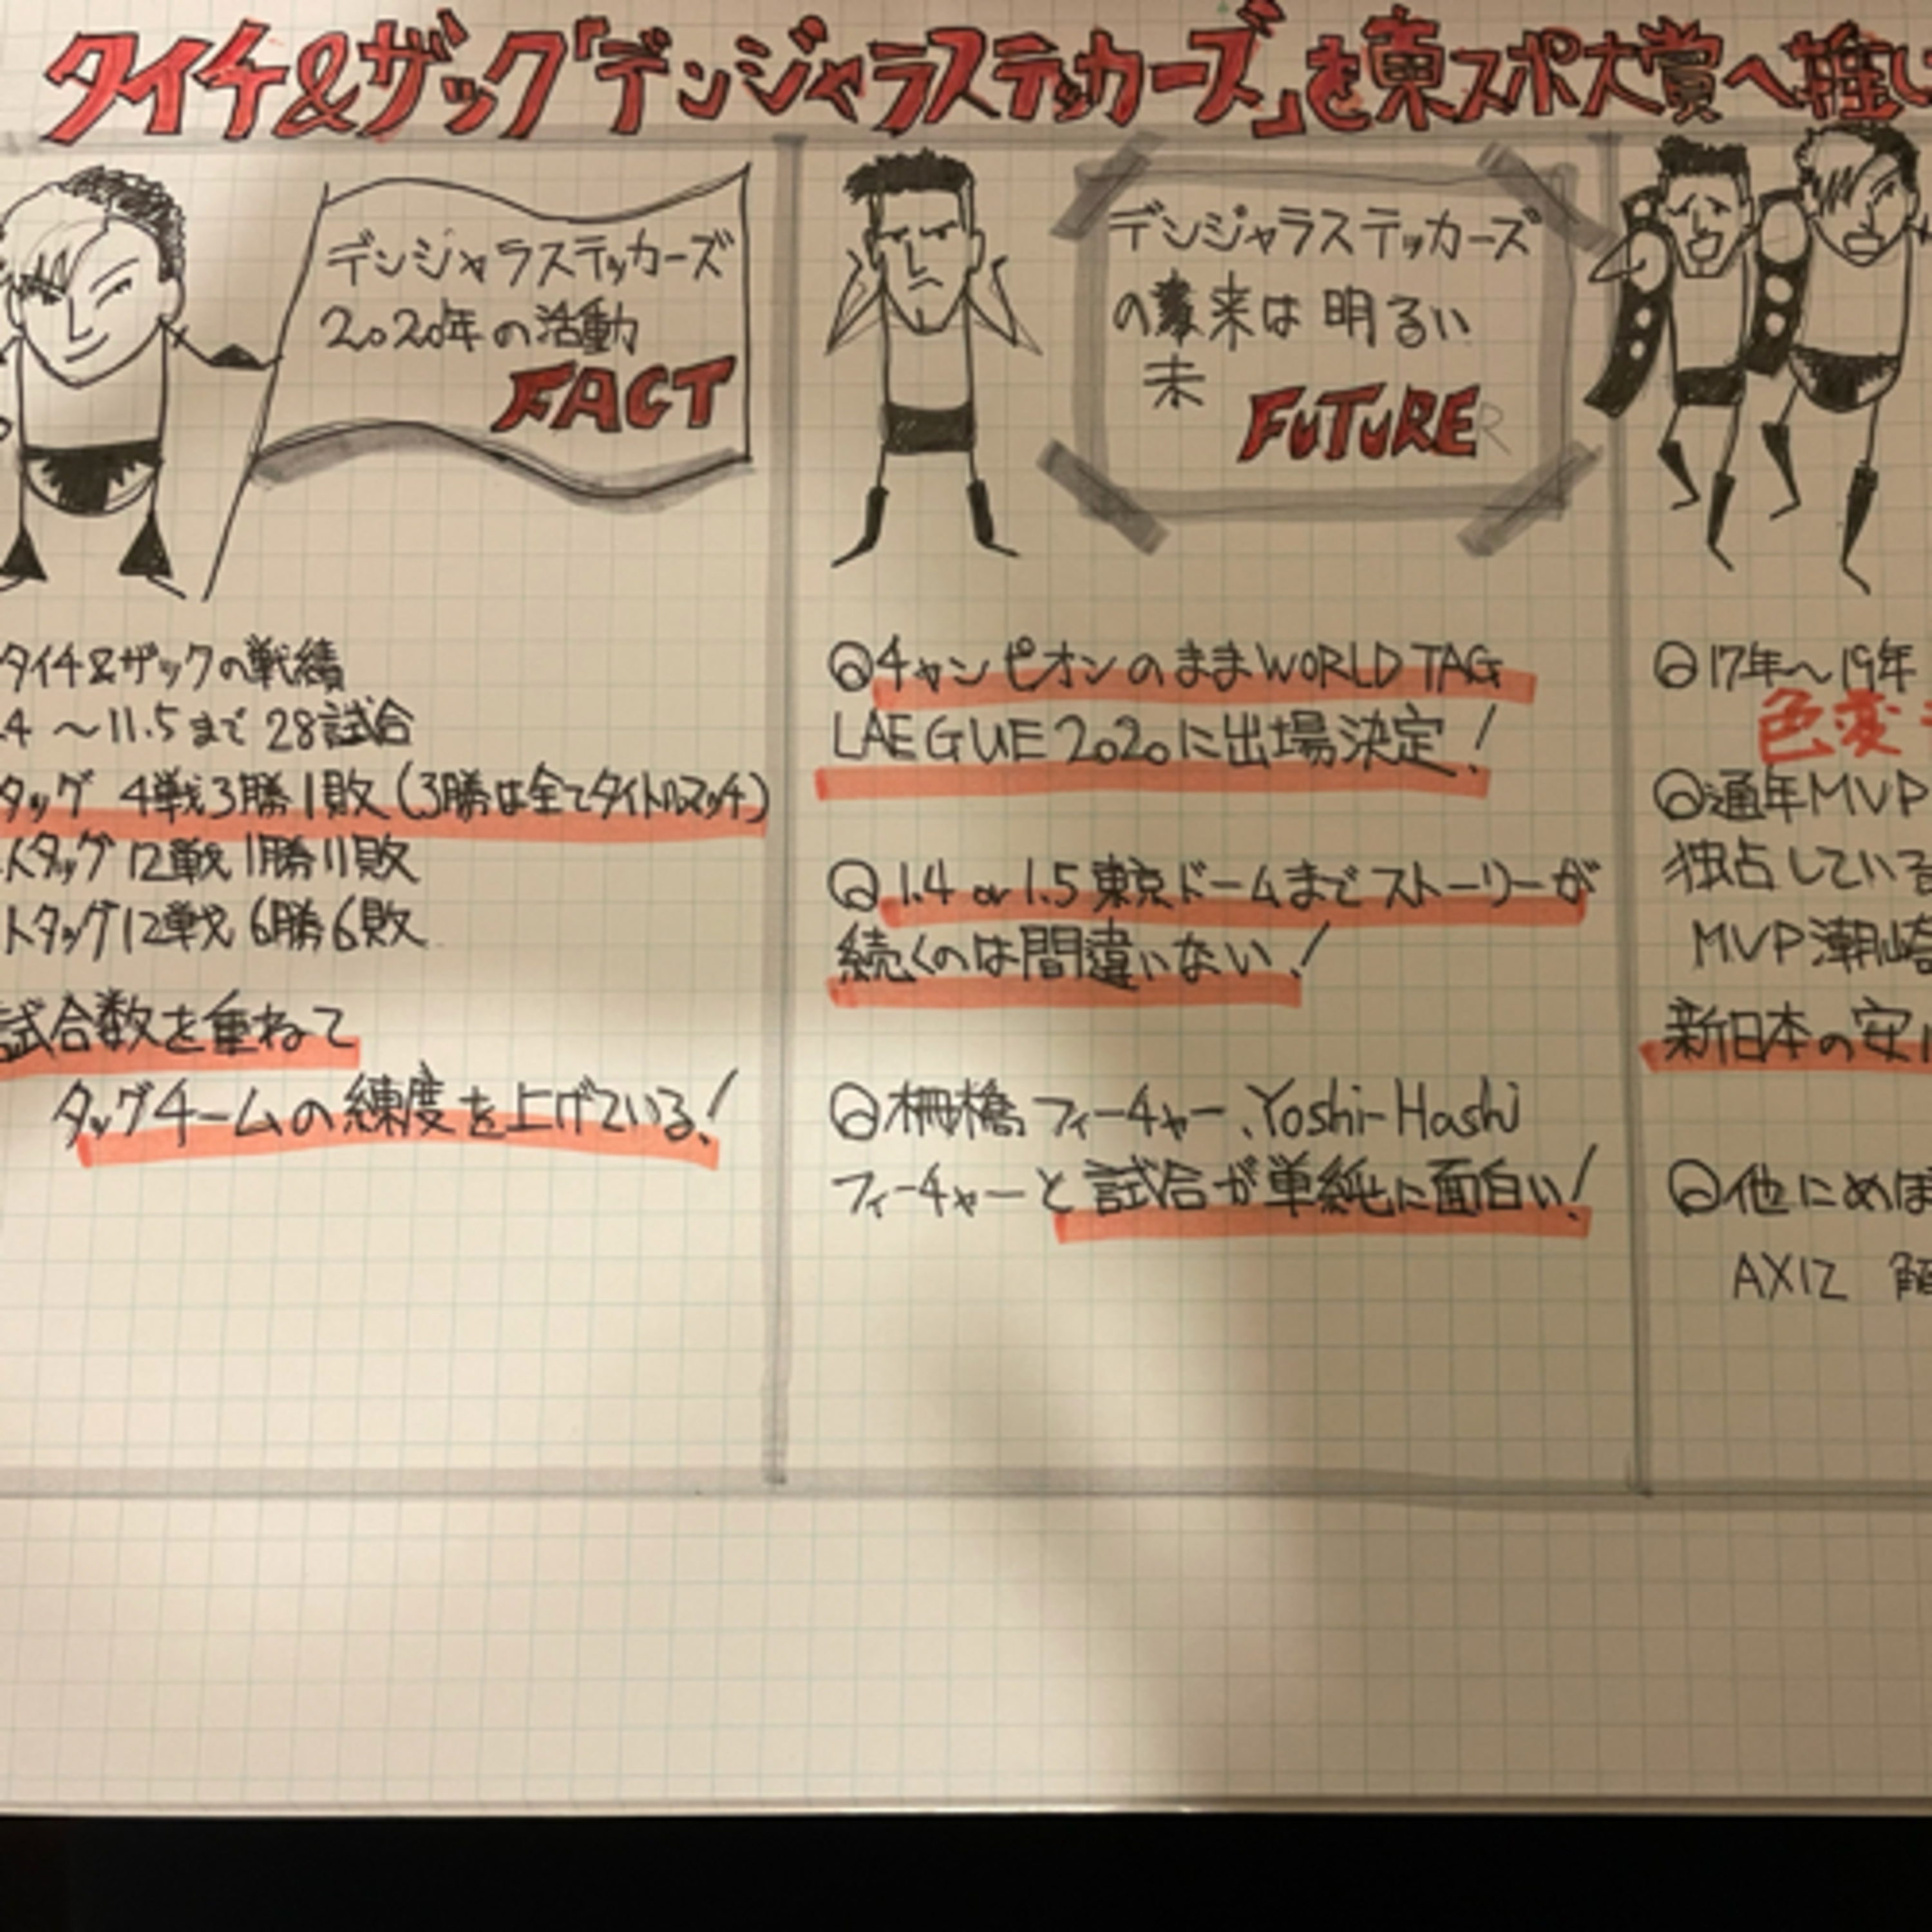 タイチ&ザック「デンジャラステッカーズ」を東スポ大賞へ推し
デンジャラステッカーズ
2020年の活動
FACT
タイチ&ザックの戦績
.4 〜11.5まで 28試合
タッグ 4戦3勝1敗(3勝は全てタイトルマッチ)
人タッグ12戦1勝11敗
人タッグ12戦6勝6敗
試合数を重ねて
タッグチームの練度を上げている!
デンジャラステッカーズ
の来は明るい
未
FUTURE
チャンピオンのままWORLD TAG
LAEGUE2020に出場決定!
1.4 or 1.5 東京ドームまでストーリーが
続くのは間違いない!
棚橋フィーチャー、Yoshi-Hashi
フィーチャーと試合が単純に面白い!
17年〜19年
色変
通年MVP
独占している
MVP潮崎
新日本の安
他にめぼ
AXIZ 解